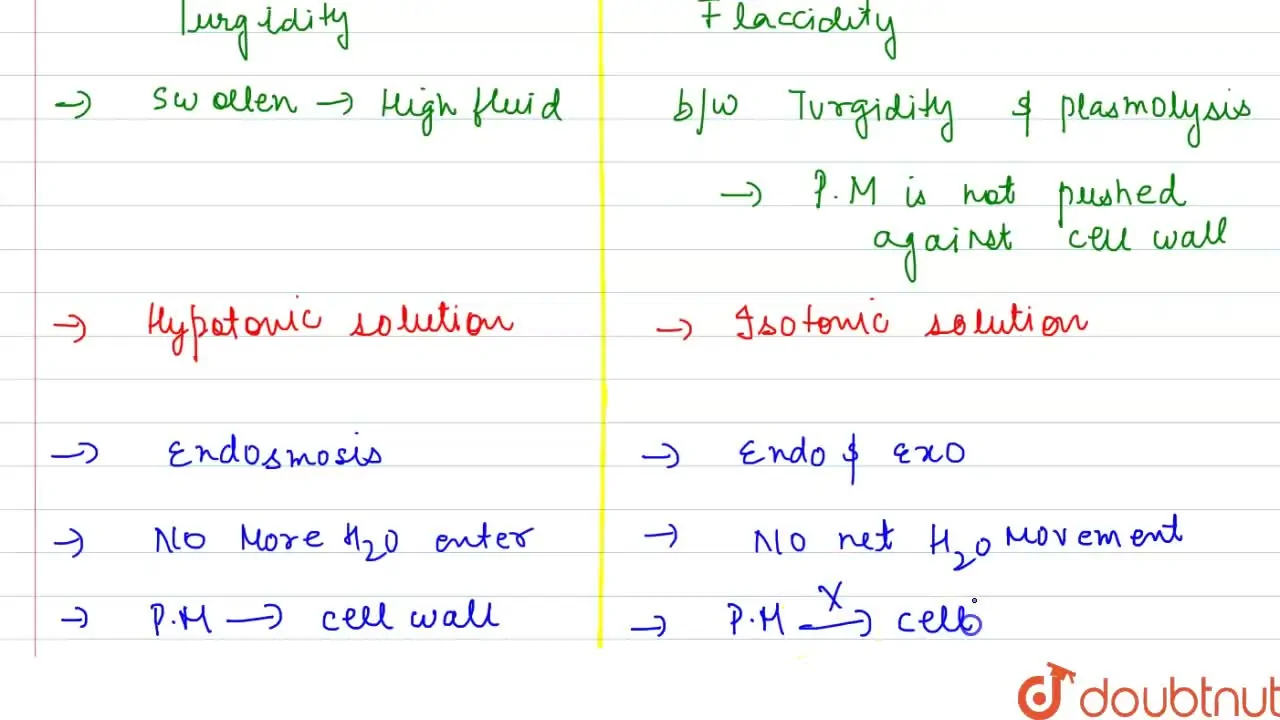 Turgidity
→ Swollen → High fluid
→ Hypotonic solution
→ Endosmosis
→ No More H2O enter
→ P.M → cell wall
Flaccidity
b/w Turgidity & plasmolysis
→ P.M is not pushed
against cell wall
→ Isotonic solution
→ Endo & Exo
→ No net H2O Movement
→ P.M X→ cell
doubtnut